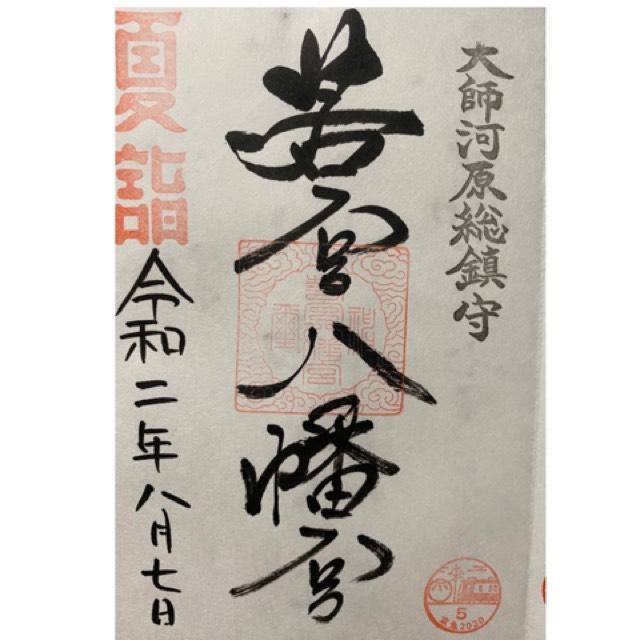 大師河原総鎮守
若宮八幡宮
夏詣
令和二年八月七日
5
2020